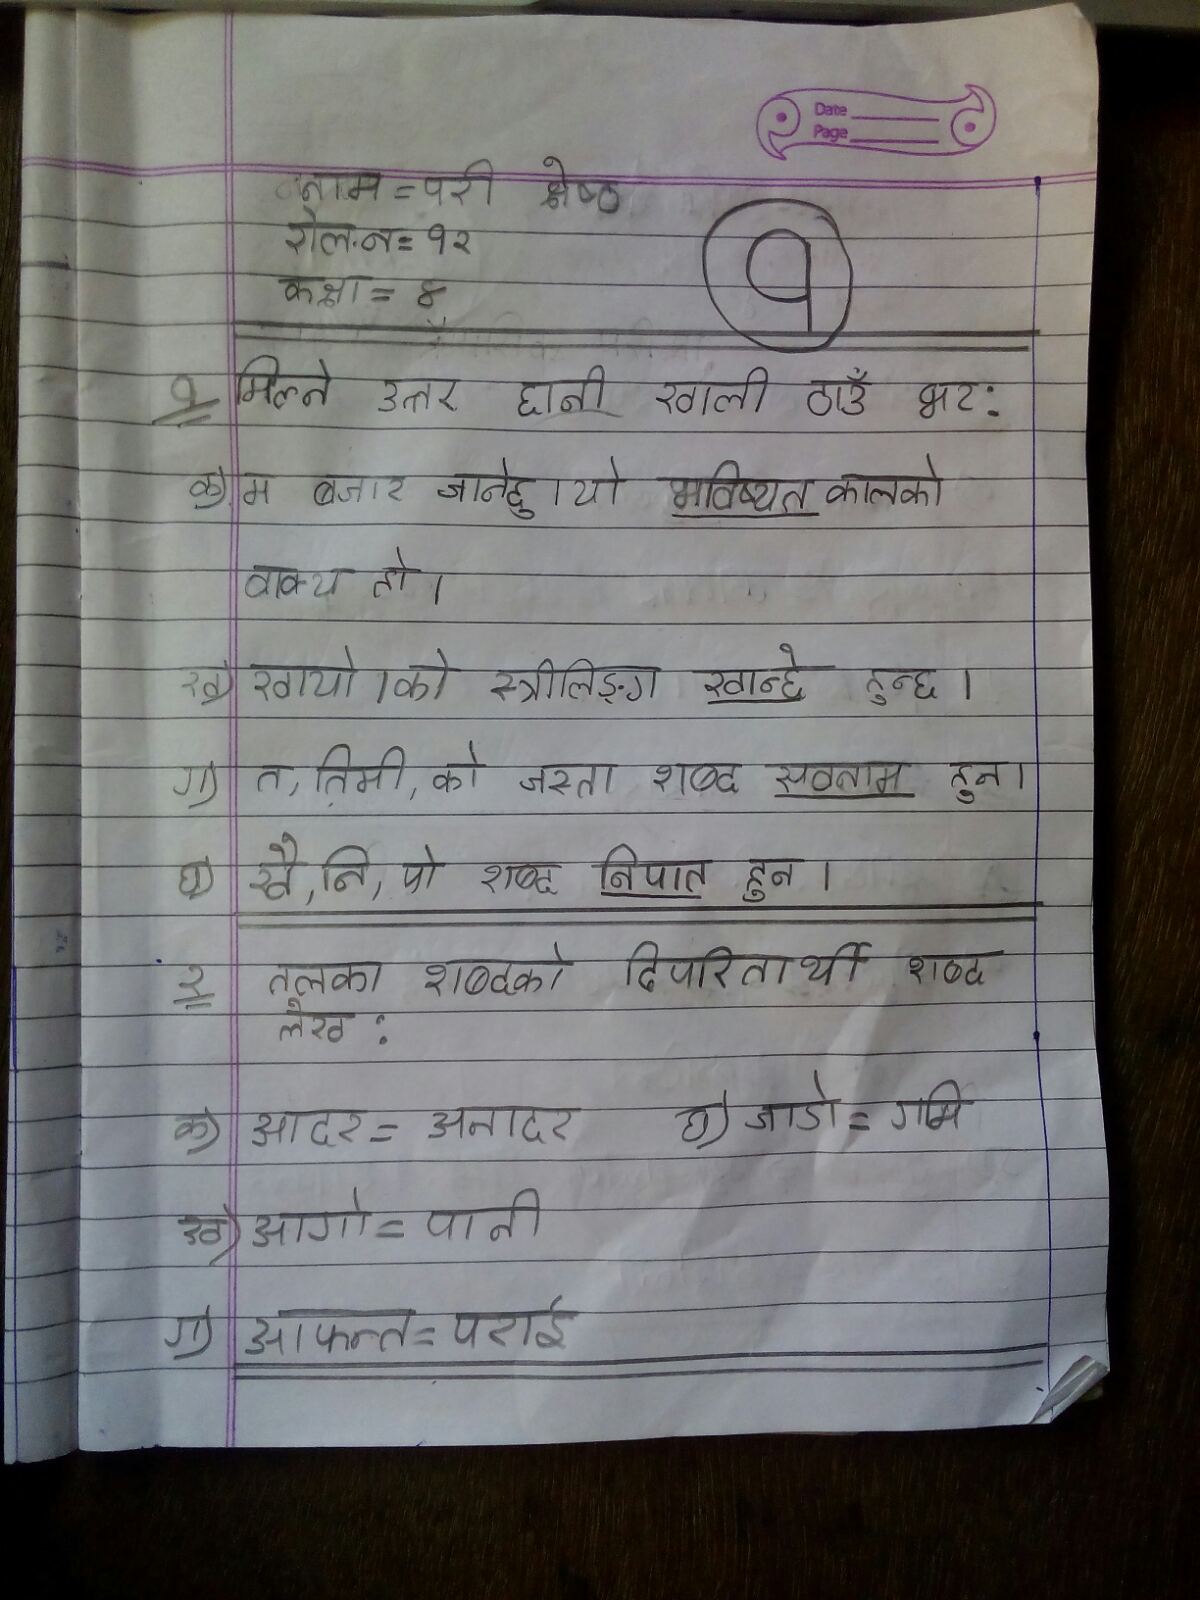 Date
Page
नाम = परी श्रेष्ठ
रोल.न = १२
कक्षा = ४
१
१ मिल्ने उत्तर छानी खाली ठाउँ भर :
क) म बजार जानेछु । यो भविष्यत कालको
वाक्य हो ।
ख) खायो । को स्त्रीलिङ्ग खान्छे हुन्छ ।
ग) त, तिमी, को जस्ता शब्द सवनाम हुन ।
घ) खै, नि, पो शब्द निपात हुन ।
२ तलका शब्दको विपरितार्थी शब्द
लेख :
क) आदर = अनादर घ) जाडो = गर्मि
ख) आगो = पानी
ग) आफन्त = पराई